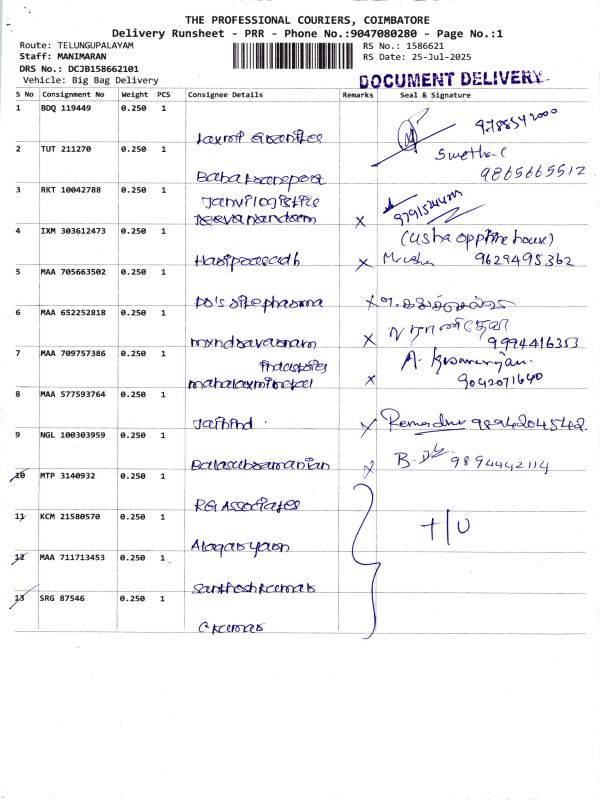 THE PROFESSIONAL COURIERS, COIMBATORE
Delivery Runsheet - PRR - Phone No.:9047080280 - Page No.:1
Route: TELUNGUPALAYAM RS No.: 1586621
Staff: MANIMARAN RS Date: 25-Jul-2025
DRS No.: DCJB158662101
Vehicle: Big Bag Delivery DOCUMENT DELIVERY
S No Consignment No Weight PCS Consignee Details Remarks Seal & Signature
1 BDQ 119449 0.250 1
9788542000
2 TUT 211270 0.250 1 Swetha.C
Baba transport 9865665512
3 RKT 10042788 0.250 1 Janvi logistics
Deevanandam x
4 IXM 303612473 0.250 1 (Usha opp the house)
Hariprasadh x 9629495362
5 MAA 705663502 0.250 1
x
6 MAA 652252818 0.250 1
x 9994416353
7 MAA 709757386 0.250 1 A.
mahalaxmi metal x 9042071640
8 MAA 577593764 0.250 1
Jaihind x 9894204542
9 NGL 100303959 0.250 1
Balasubramanian x B. 9894442114
10 MTP 3140932 0.250 1
RG Associates
11 KCM 21580570 0.250 1 T/U
12 MAA 711713453 0.250 1
Santhoshkumar
13 SRG 87546 0.250 1
C kumar